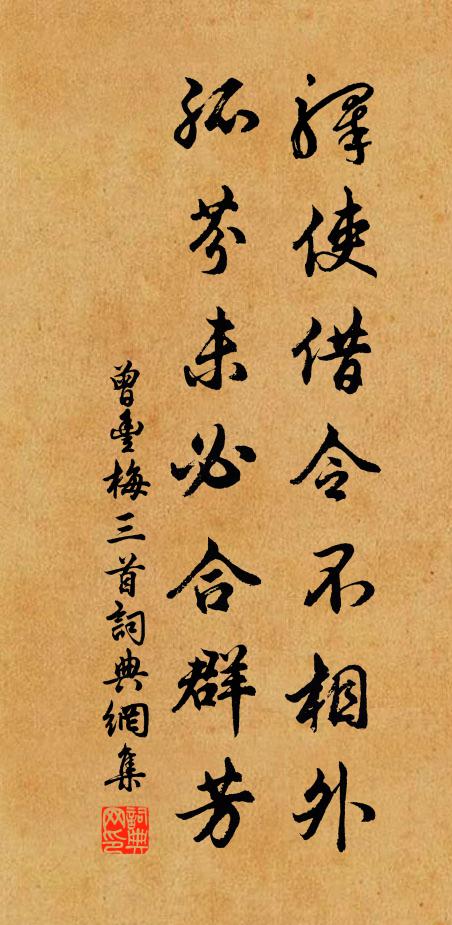 驛使借令不相外
孤芬未必合群芳
曾豐梅三首詞典網集
詞典网印